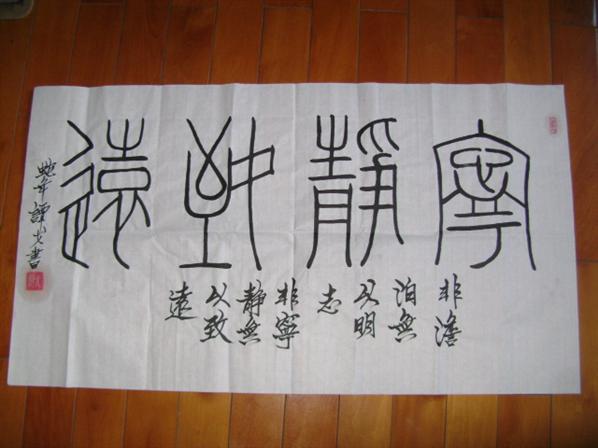 寧靜致遠
非澹
泊無
以明
志
非寧
靜無
以致
遠
蛇年譚少書